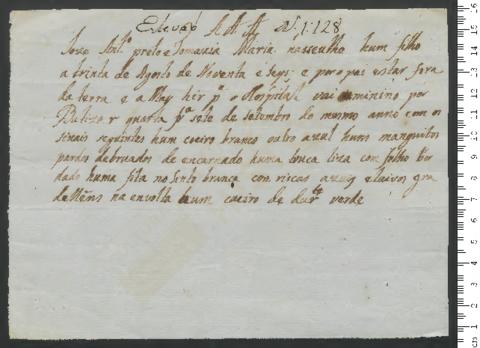 Estevão A A A N. 1:128
Joze Ant.º preto e Tomazia Maria nasseulho hum filho
a trinta de Agosto de Noventa e seys e por o pai estar fora
da terra e a May hir p.ª o Hospital vai o minino por
Batizar quarta f.ª sete de setembro do mesmo anno com os
sinais seguintes hum coeiro branco outro azul huns manguitos
pardos debruados de encarnado huma touca liza com folho bor
dado huma fita no sinto branca com riscas azuis e laivos
na envolta hum coeiro de verde